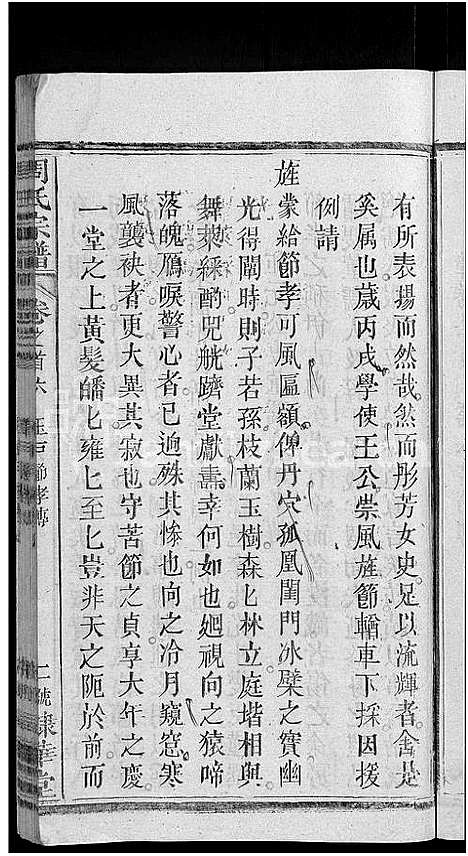 有所表揚而然哉然而彤芳女史足以流輝者舍是
奚属也歳丙戌學使王公崇風旌節輶車下採因援
例請
旌蒙給節孝可風匾額俾丹穴孤凰閨門冰檗之寶幽
光得闡時則子若孫枝蘭玉樹森匕林立庭堦相與
舞萊綵酌兕觥躋堂獻壽幸何如也廻視向之猿啼
落魄鴈唳警心者已逈殊其慘也向之冷月窺窓寒
風襲袂者更大異其寂也守苦節之貞享大年之慶
一堂之上黃髮皤匕雍匕至匕豈非天之阨於前而
周氏宗譜
卷之首六
節孝傳
二號
棣華堂